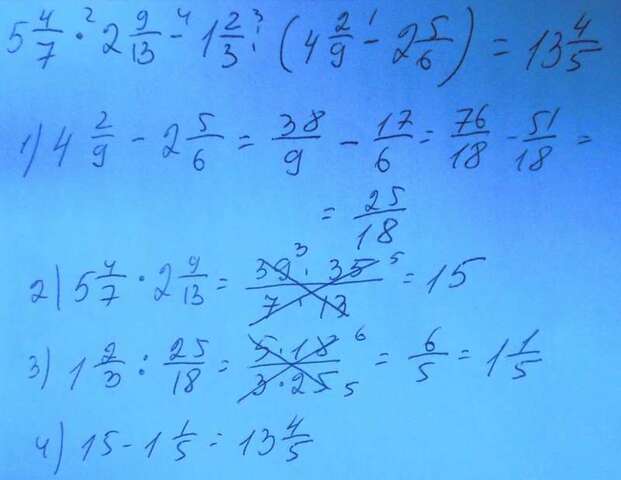 5 4/7 ·² 2 9/13 -⁴ 1 2/3 :³ (4 2/9 -¹ 2 5/6) = 13 4/5
1) 4 2/9 - 2 5/6 = 38/9 - 17/6 = 76/18 - 51/18 =
= 25/18
2) 5 4/7 · 2 9/13 = 39³ · 35⁵ / 7 · 13 = 15
3) 1 2/3 : 25/18 = 5 · 18⁶ / 3 · 25₅ = 6/5 = 1 1/5
4) 15 - 1 1/5 = 13 4/5